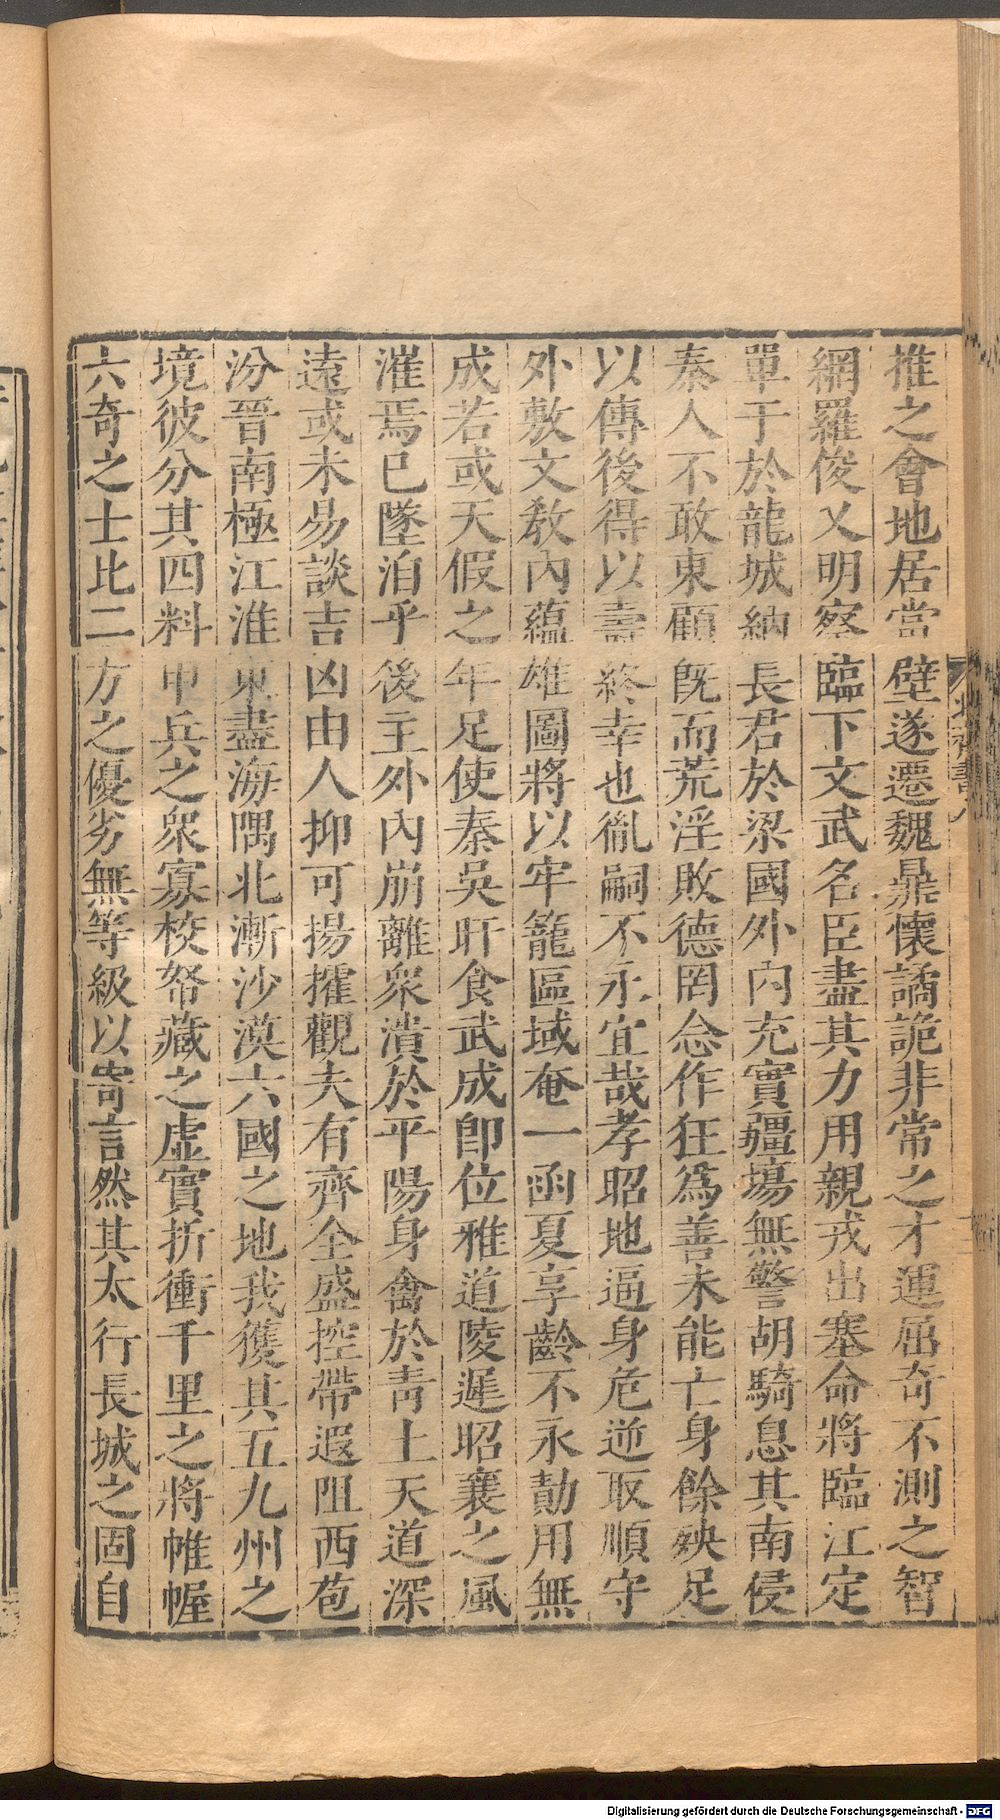 推之會地居當璧遂遷魏鼎懷譎詭非常之才運屈奇不測之智
網羅俊乂明察臨下文武名臣盡其力用親戎出塞命將臨江定
單于於龍城納長君於梁國外内充實疆埸無警胡騎息其南侵
秦人不敢東顧旣而荒淫敗德罔念作狂爲善未能亡身餘殃足
以傳後得以壽終幸也胤嗣不永宜哉孝昭地逼身危逆取順守
外敷文敎內蘊雄圖將以牢籠區域奄一函夏享齡不永勣用無
成若或天假之年足使秦吳旰食武成卽位雅道陵遲昭襄之風
漼焉已墜洎乎後主外內崩離衆潰於平陽身禽於靑土天道深
遠或未易談吉凶由人抑可揚搉觀夫有齊全盛控帶遐阻西苞
汾晉南極江淮東盡海隅北漸沙漠六國之地我獲其五九州之
境彼分其四料甲兵之衆寡校帑藏之虛實折衝千里之將帷幄
六奇之士比二方之優劣無等級以寄言然其太行長城之固自
Digitalisierung gefördert durch die Deutsche Forschungsgemeinschaft - DFG